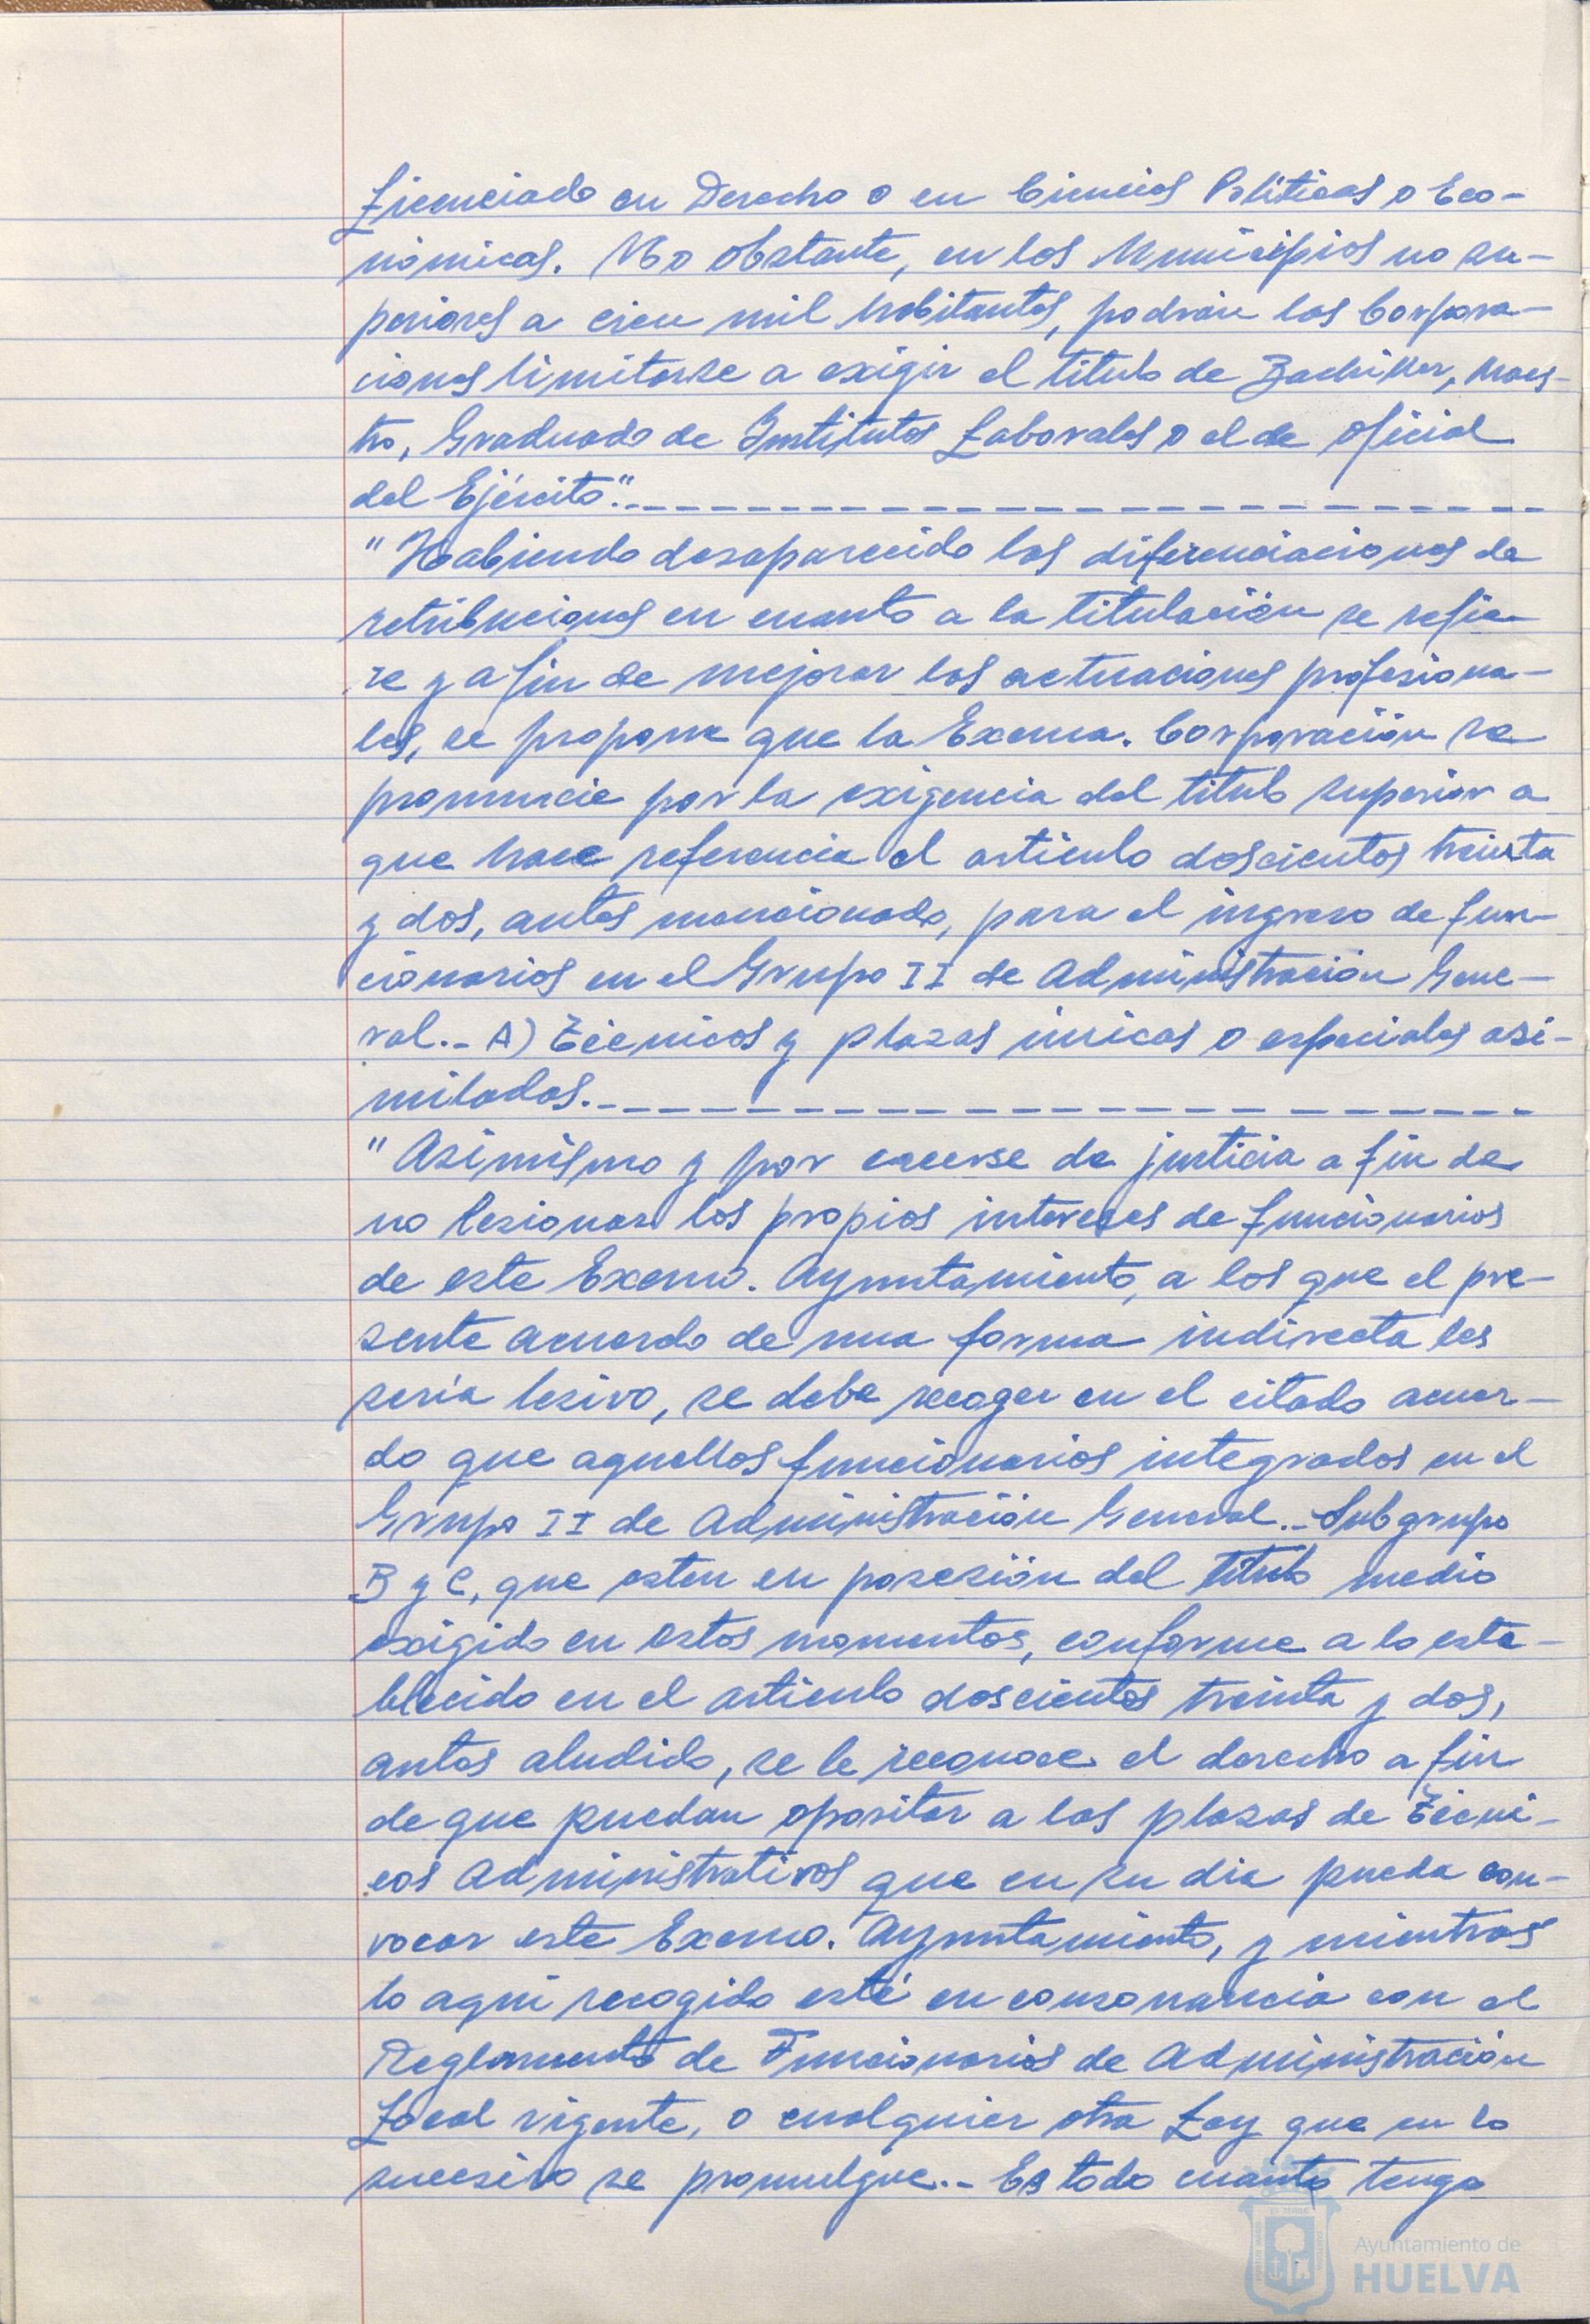 Licenciado en Derecho o en Ciencias Políticas o Eco-
nómicas. No obstante, en los Municipios no su-
periores a cien mil habitantes, podrán las Corpora-
ciones limitarse a exigir el título de Bachiller, Maes-
tro, Graduado de Institutos Laborales o el de oficial
del Ejército".-
"Habiendo desaparecido las diferenciaciones de
retribuciones en cuanto a la titulación se refie-
re y a fin de mejorar las actuaciones profesiona-
les, se propone que la Excma. Corporación se
pronuncie por la exigencia del título superior a
que hace referencia el artículo doscientos treinta
y dos, antes mencionado, para el ingreso de fun-
cionarios en el Grupo II de Administración Gene-
ral.- A) Técnicos y plazas únicas o especiales asi-
milados.-
"Asimismo y por creerse de justicia a fin de
no lesionar los propios intereses de funcionarios
de este Excmo. Ayuntamiento, a los que el pre-
sente acuerdo de una forma indirecta les
sería lesivo, se debe recoger en el citado acuer-
do que aquellos funcionarios integrados en el
Grupo II de Administración General.- Subgrupo
B y C, que esten en posesión del título medio
exigido en estos momentos, conforme a lo esta-
blecido en el artículo doscientos treinta y dos,
antes aludido, se le reconoce el derecho a fin
de que puedan opositar a las plazas de Técni-
cos Administrativos que en su dia pueda con-
vocar este Excmo. Ayuntamiento, y mientras
lo aquí recogido esté en consonancia con el
Reglamento de Funcionarios de Administración
Local vigente, o cualquier otra Ley que en lo
sucesivo se promulgue.- Es todo cuanto tengo
Ayuntamiento de
HUELVA